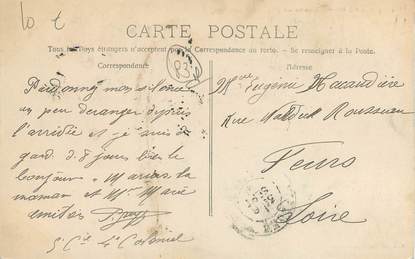 CARTE POSTALE
Tous les Pays étrangers n'acceptent pas la Correspondance au recto. - Se renseigner à la Poste.
Correspondance
Adresse
Pardonnez moi si
un peu déranger depuis
l'arrivée et je suis de
gard. d. 8 jours bien le
bonjour a
maman et Mlle Marie
amitiés
5e Cie 4e Colonial
Mlle Eugénie
Rue Waldeck Rousseau
Feurs
Loire